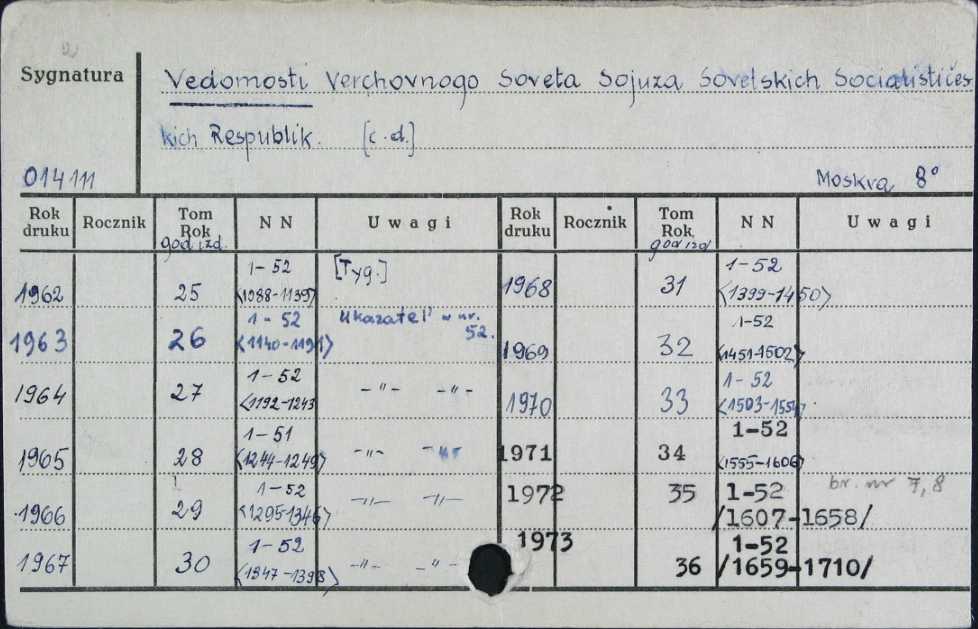 Sygnatura
Vedomosti Verchovnogo Soveta Sojuza Sovetskich Socialističes
kich Respublik. [c.d.]
014111
Moskva 8°
Rok druku Rocznik Tom Rok god izd. NN Uwagi Rok druku Rocznik Tom Rok god izd NN Uwagi
1962 25 1-52 <1088-1139> [Tyg.] 1968 31 1-52 <1399-1450>
1963 26 1-52 <1140-1191> Ukazatel' w nr. 52. 1969 32 1-52 <1451-1502>
1964 27 1-52 <1192-1243 -"- -"- 1970 33 1-52 <1503-1554>
1965 28 1-51 <1244-1249> -"- -"- 1971 34 1-52 <1555-1606>
1966 29 1-52 <1295-1346> -"- -"- 1972 35 1-52 /1607-1658/ br. nr 7, 8
1967 30 1-52 <1347-1398> -"- -"- 1973 36 1-52 /1659-1710/